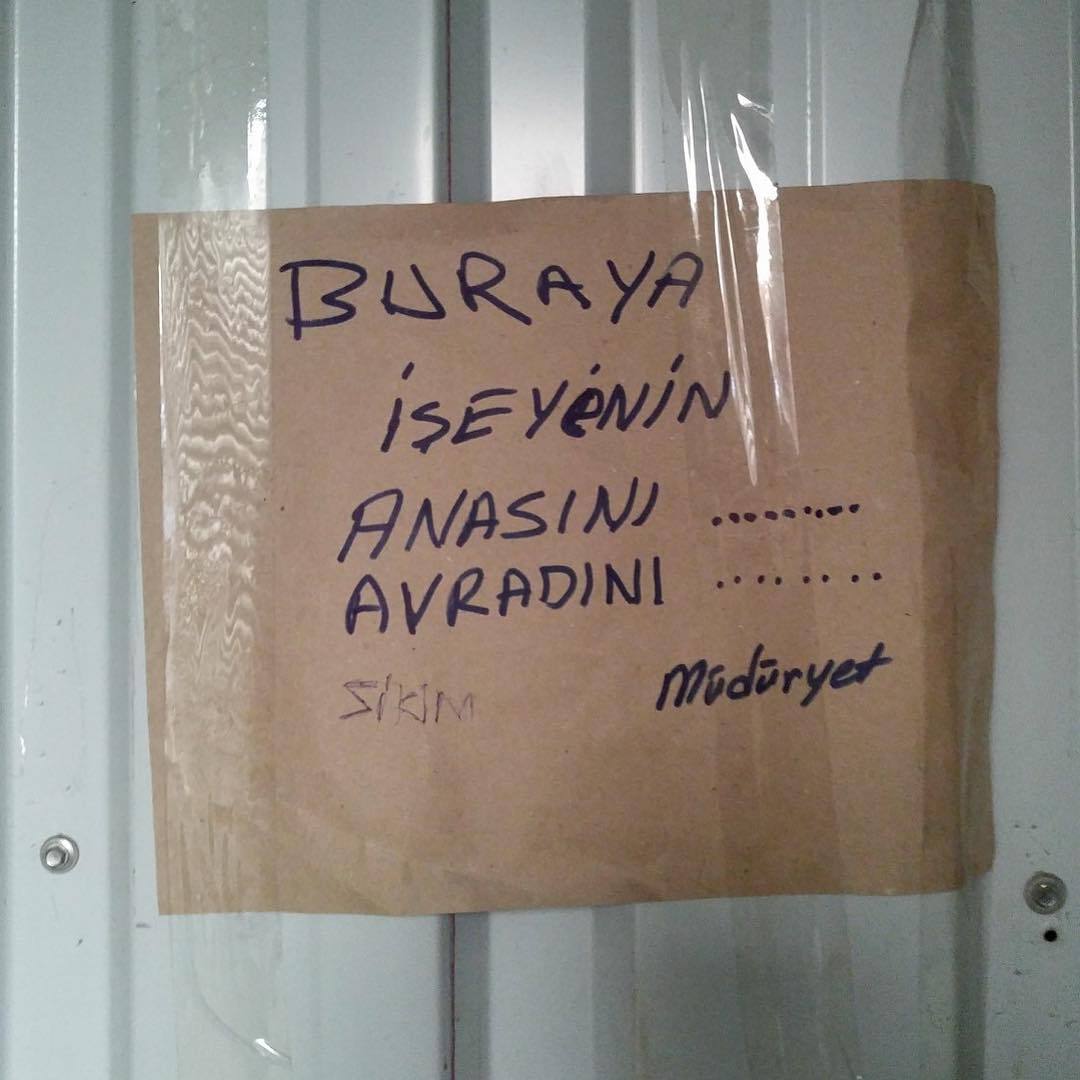 BURAYA
İŞEYENİN
ANASINI .........
AVRADINI ........
SİKİM
Müdüryet